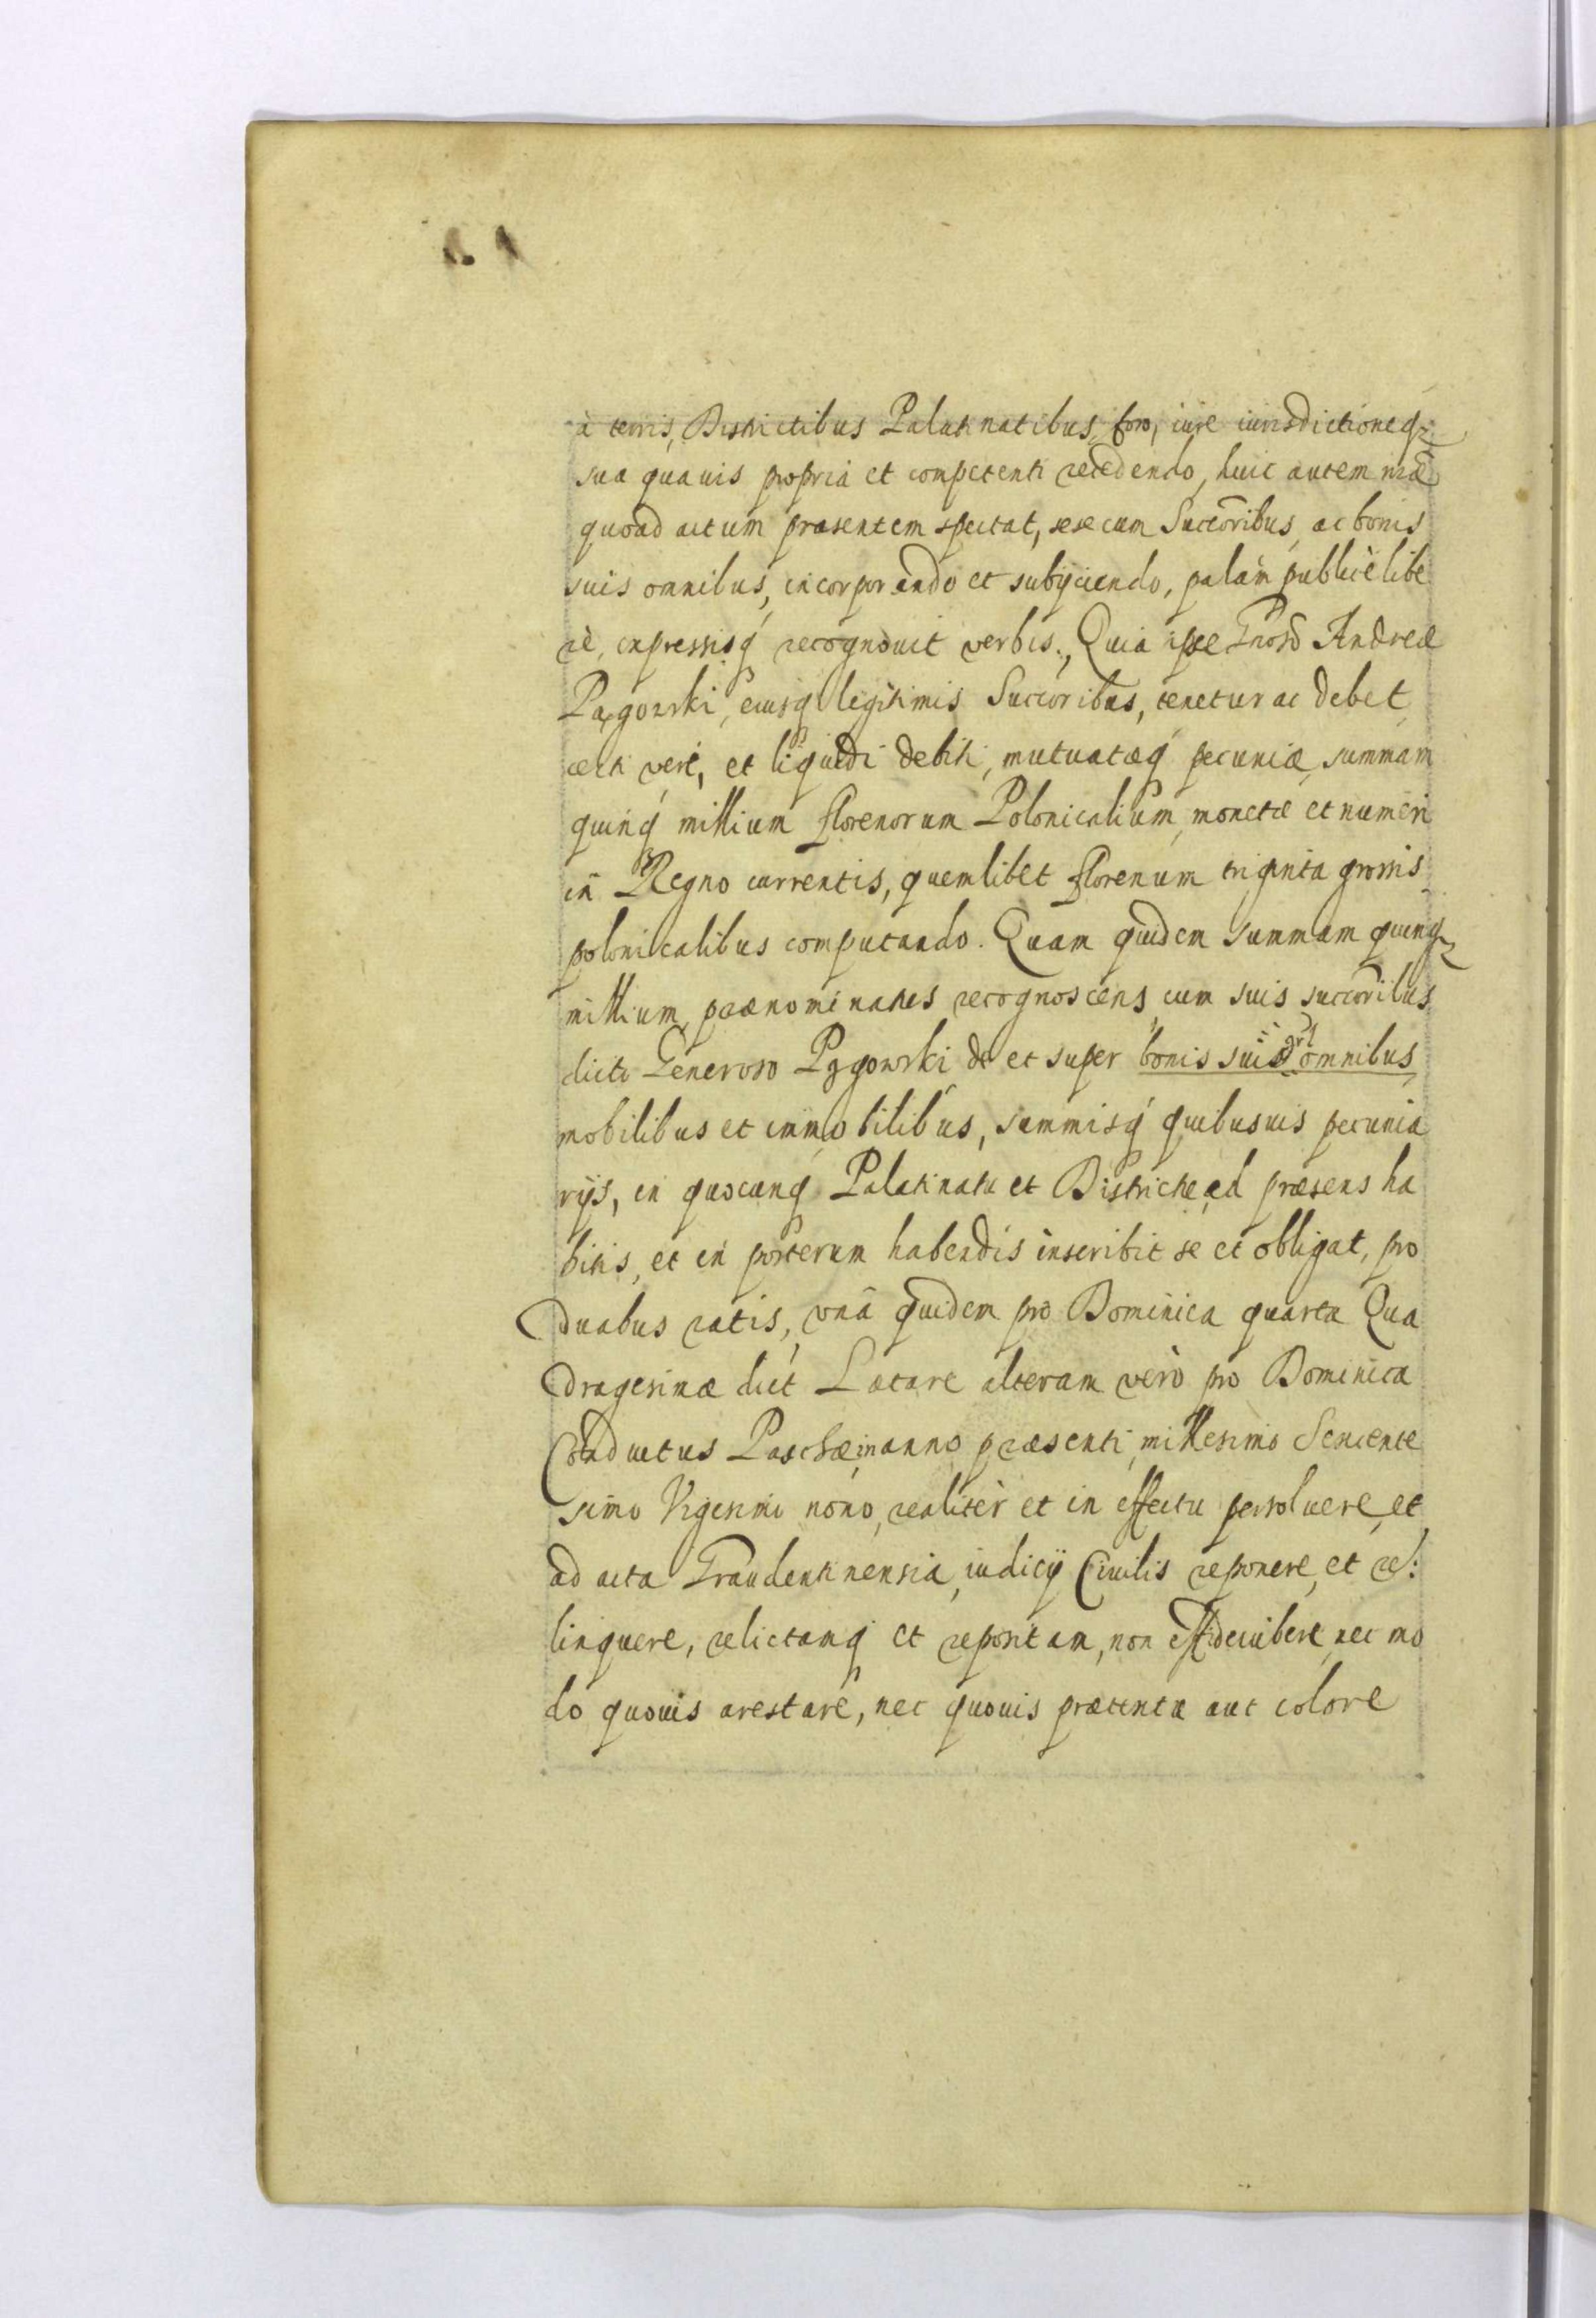 à terris, Districtibus Palatinatibus, foro, iure iurisdictioneq
sua quauis propria et competenti recedendo, huic autem
quoad actum præsentem spectat, sese cum Succoribus, ac bonis
suis omnibus, incorporando et subijciendo, palàm publicè libe
rè, expressisq recognouit verbis., Quia ipse Gnoso Andreæ
Pągowski, eiusq legitimis Succoribus, tenetur ac debet
certi veri, et liquidi debiti, mutuatæq pecuniæ, summam
quinq millium florenorum Polonicalium, monetæ et numeri
in Regno currentis, quemlibet florenum triginta grossis
polonicalibus computando. Quam quidem summam quinq
millium, prænominatus recognoscens, cum suis succoribus
dicto Generoso Pągowski de et super bonis suis grl omnibus
mobilibus et immobilibus, summisq quibusuis pecunia
rijs, in quocunq Palatinatu et Districtu, ad præsens ha
bitis, et in posterum habendis inscribit se et obligat, pro
duabus ratis, vnã quidem pro Dominica quarta Qua
dragesimæ dict Lætare alteram verò pro Dominica
Conductus Paschæ, in anno præsenti, millesimo Sexcente
simo Vigesimo nono, realitèr et in effectu persoluere, et
ad acta Graudentinensia, iudicij Ciuilis reponere, et re:
linquere, relictamq et repositam, non, nec mo
do quouis arestare, nec quouis prætextu aut colore